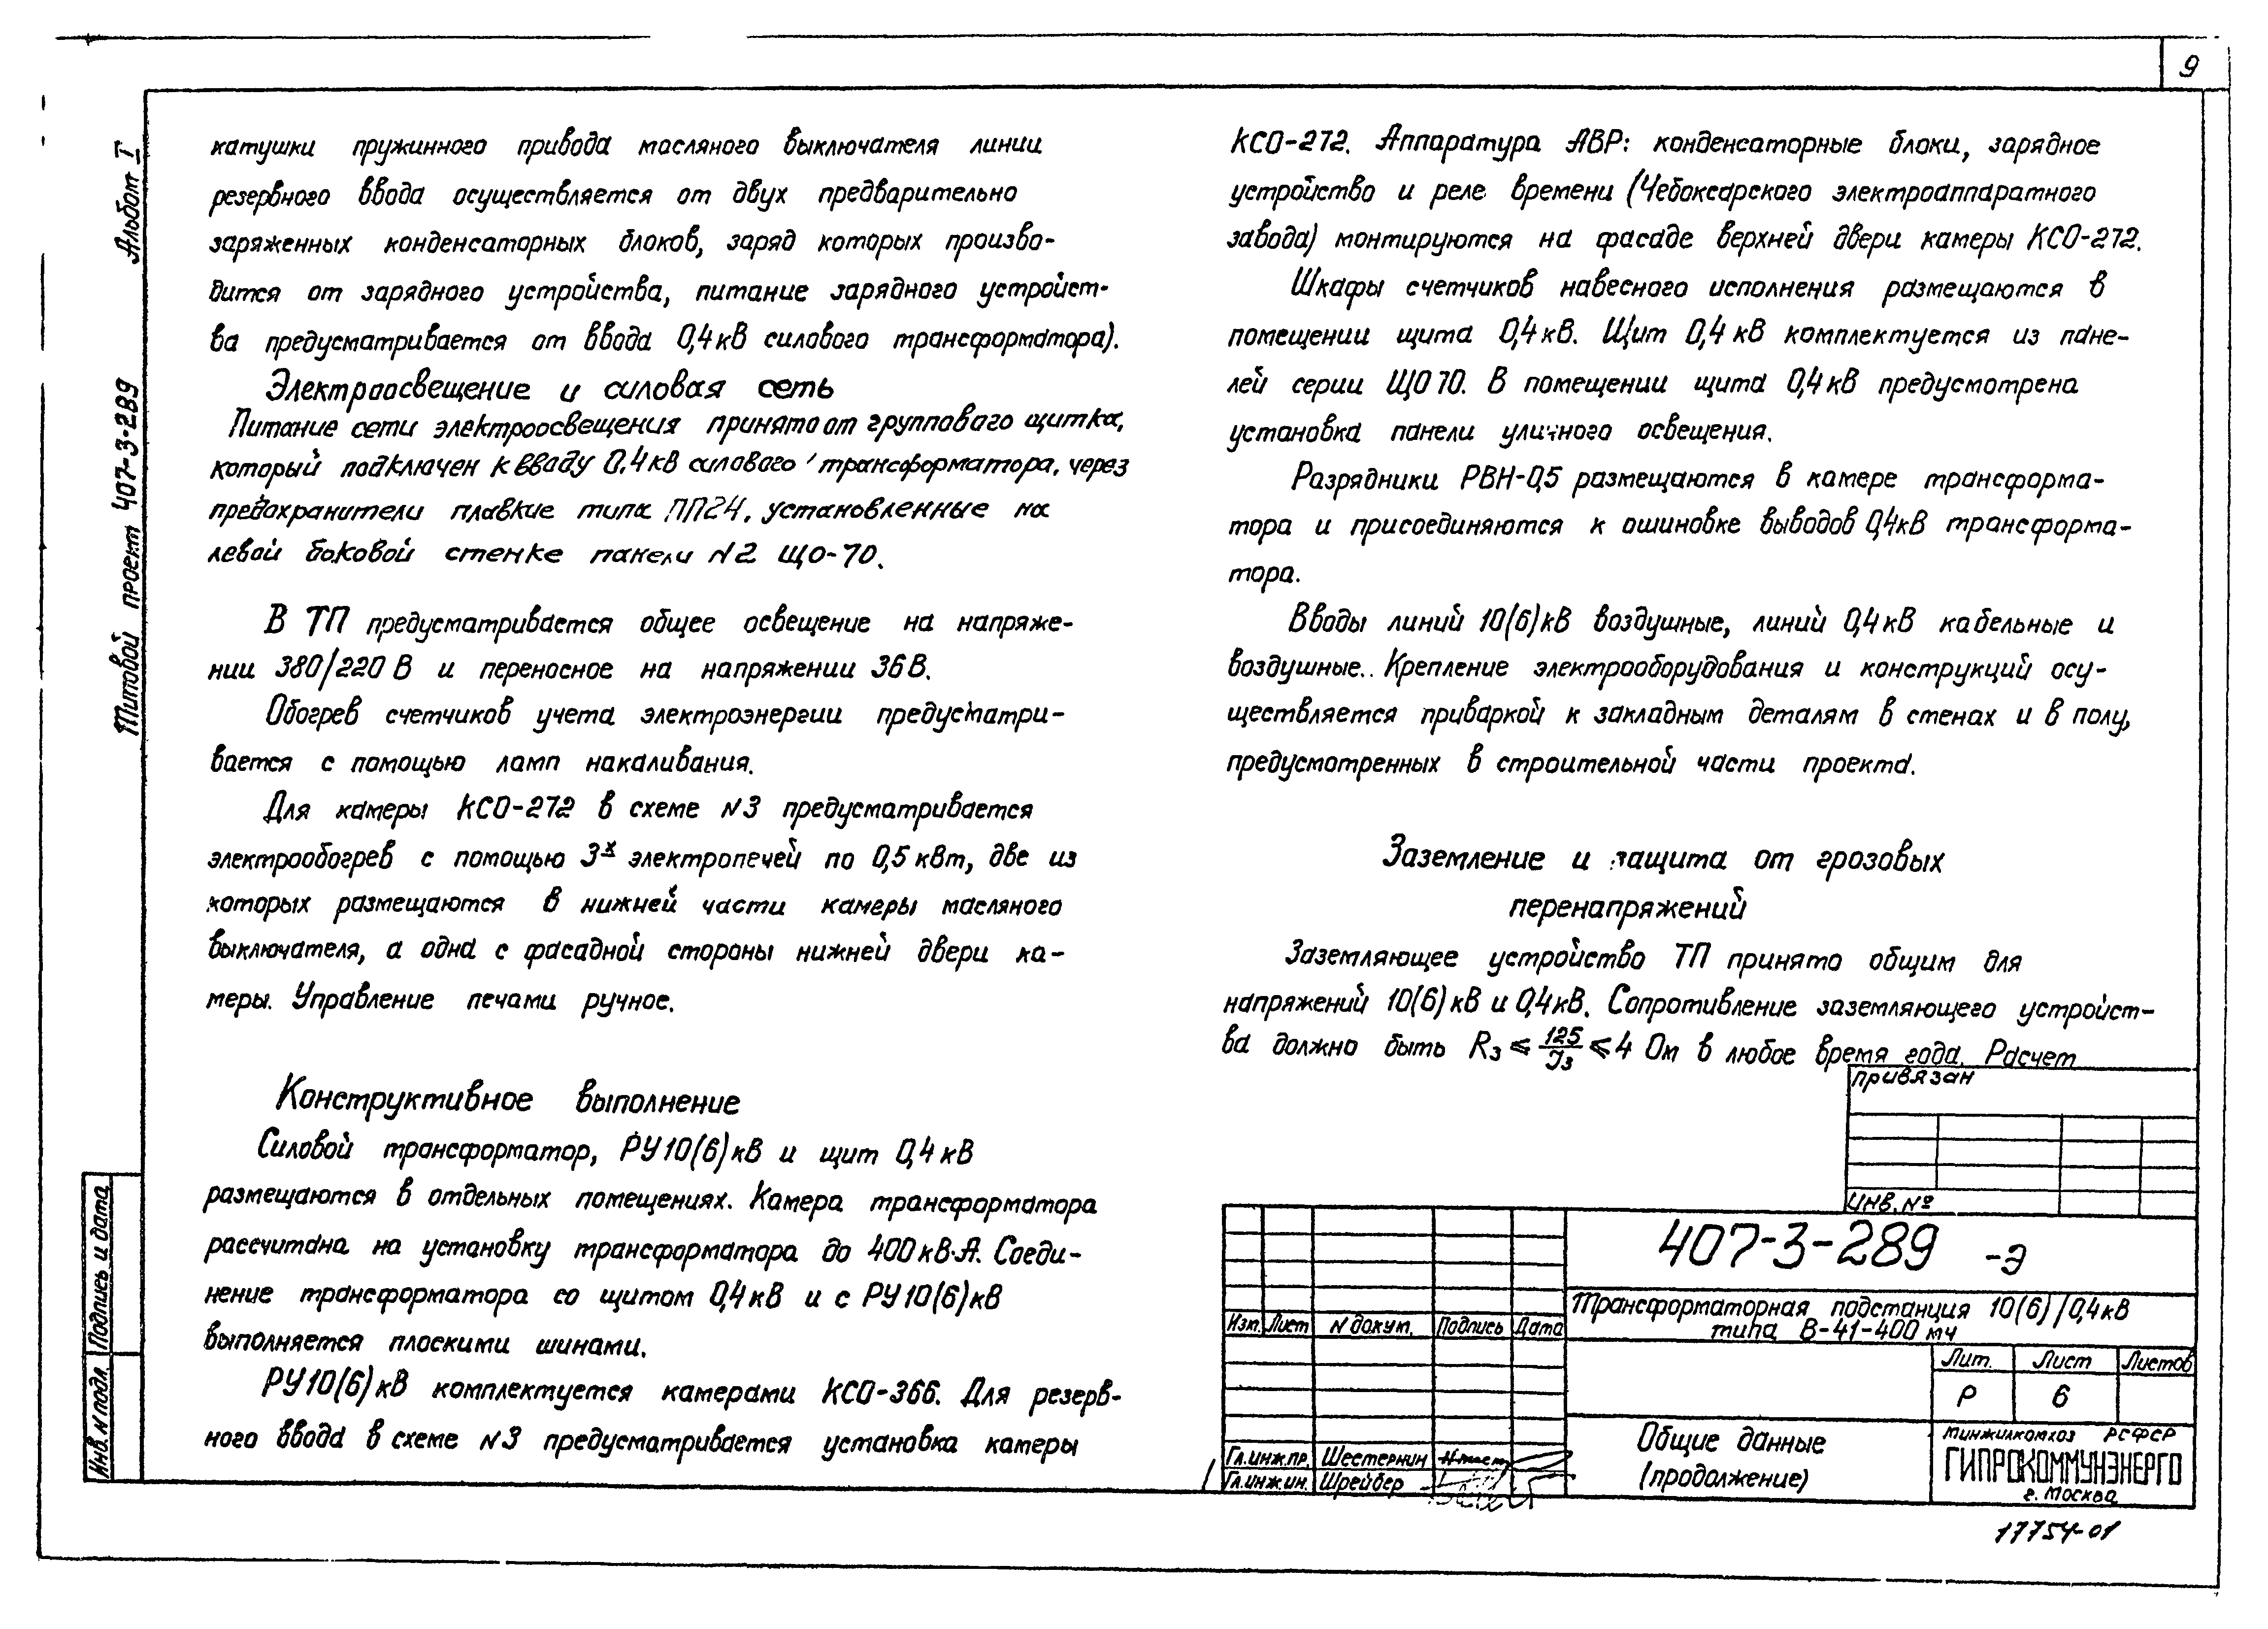 9
Альбом I
Типовой проект 407-3-289
катушки пружинного привода масляного выключателя линии
резервного ввода осуществляется от двух предварительно
заряженных конденсаторных блоков, заряд которых произво-
дится от зарядного устройства, питание зарядного устройст-
ва предусматривается от ввода 0,4 кВ силового трансформатора).
Электроосвещение и силовая сеть
Питание сети электроосвещения принято от группового щитка,
который подключен к вводу 0,4 кВ силового трансформатора, через
предохранители плавкие типа ПП24, установленные на
левой боковой стенке панели N2 ЩО-70.
В ТП предусматривается общее освещение на напряже-
нии 380/220 В и переносное на напряжении 36 В.
Обогрев счетчиков учета электроэнергии предусматри-
вается с помощью ламп накаливания.
Для камеры КСО-272 в схеме N3 предусматривается
электрообогрев с помощью 3х электропечей по 0,5 кВт, две из
которых размещаются в нижней части камеры масляного
выключателя, а одна с фасадной стороны нижней двери ка-
меры. Управление печами ручное.
Конструктивное выполнение
Силовой трансформатор, РУ 10(6) кВ и щит 0,4 кВ
размещаются в отдельных помещениях. Камера трансформатора
рассчитана на установку трансформатора до 400 кВ·А. Соеди-
нение трансформатора со щитом 0,4 кВ и с РУ 10(6) кВ
выполняется плоскими шинами.
РУ 10(6) кВ комплектуется камерами КСО-366. Для резерв-
ного ввода в схеме N3 предусматривается установка камеры
КСО-272. Аппаратура АВР: конденсаторные блоки, зарядное
устройство и реле времени (Чебоксарского электроаппаратного
завода) монтируются на фасаде верхней двери камеры КСО-272.
Шкафы счетчиков навесного исполнения размещаются в
помещении щита 0,4 кВ. Щит 0,4 кВ комплектуется из пане-
лей серии ЩО 70. В помещении щита 0,4 кВ предусмотрена
установка панели уличного освещения.
Разрядники РВН-0,5 размещаются в камере трансформа-
тора и присоединяются к ошиновке выводов 0,4 кВ трансформа-
тора.
Вводы линий 10(6) кВ воздушные, линий 0,4 кВ кабельные и
воздушные.. Крепление электрооборудования и конструкций осу-
ществляется приваркой к закладным деталям в стенах и в полу,
предусмотренных в строительной части проекта.
Заземление и защита от грозовых
перенапряжений
Заземляющее устройство ТП принято общим для
напряжений 10(6) кВ и 0,4 кВ. Сопротивление заземляющего устройст-
ва должно быть Rз ≤ 125/Iз ≤ 4 Ом в любое время года. Расчет
Привязан
Инв. №
407-3-289 -Э
Трансформаторная подстанция 10(6)/0,4 кВ
типа В-41-400 м4
Изм. Лист N докум. Подпись Дата
Лит. Лист Листов
Р 6
Общие данные
(продолжение)
Минжилкомхоз РСФСР
ГИПРОКОММУНЭНЕРГО
г. Москва
Гл. инж. пр. Шестернин
Гл. инж. ин. Шрейбер
Подпись и дата
Инв. N подл.
17754-01